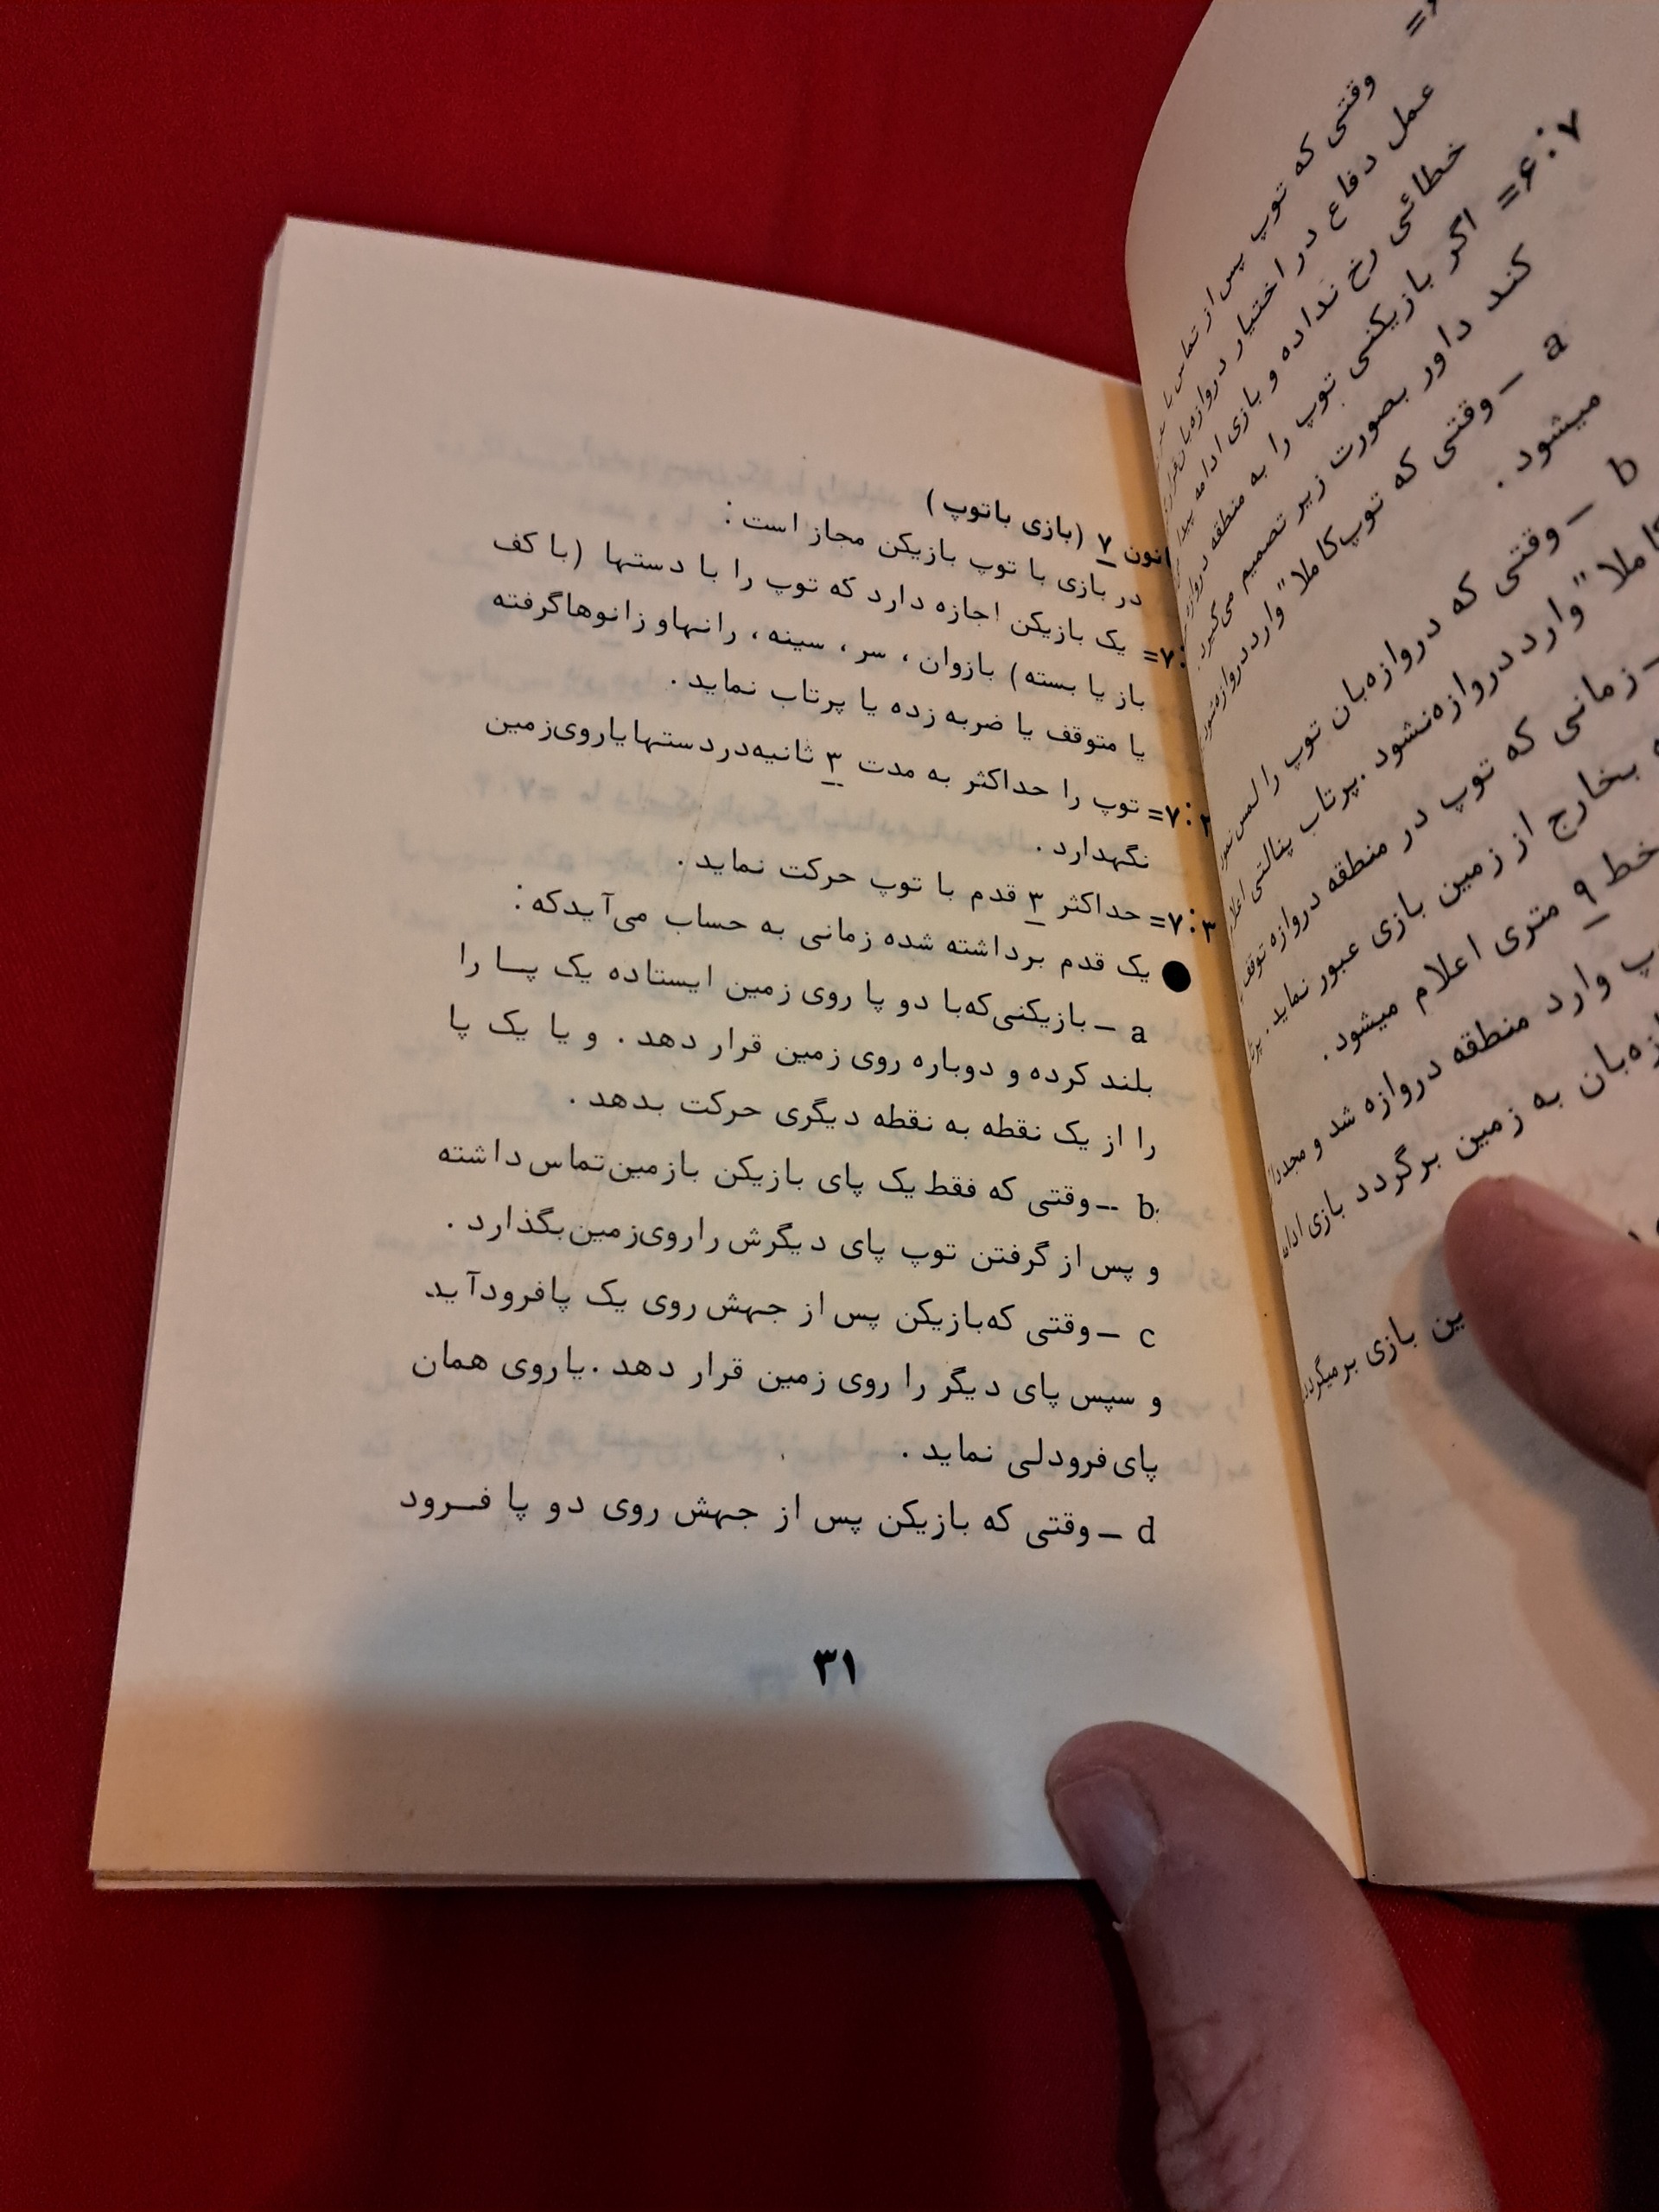 وقتی که توپ پس از تماس با
عمل دفاع در اختیار دروازه‌بان قرار
خطائی رخ نداده و بازی ادامه پیدا
۷:۶= اگر بازیکنی توپ را به منطقه دروازه
کند داور بصورت زیر تصمیم می‌گیرد.
a – وقتی که توپ کاملا" وارد دروازه شود
میشود.
b – وقتی که دروازه‌بان توپ را لمس نمود
کاملا" وارد دروازه نشود. پرتاب پنالتی اعلام
– زمانی که توپ در منطقه دروازه توقف
بخارج از زمین بازی عبور نماید.
خط ۹ متری اعلام میشود.
وارد منطقه دروازه شد و مجددا
به زمین برگردد بازی ادامه
بازی برمیگردد
انون ۷ (بازی باتوپ)
در بازی با توپ بازیکن مجاز است:
۷:= یک بازیکن اجازه دارد که توپ را با دستها (با کف
باز یا بسته) بازوان، سر، سینه، رانهاو زانوهاگرفته
یا متوقف یا ضربه زده یا پرتاب نماید.
۷:۲= توپ را حداکثر به مدت ۳ ثانیه‌دردستهایاروی‌زمین
نگهدارد.
۷:۳= حداکثر ۳ قدم با توپ حرکت نماید.
● یک قدم برداشته شده زمانی به حساب می‌آیدکه:
a – بازیکنی‌که‌با دو پا روی زمین ایستاده یک پا را
بلند کرده و دوباره روی زمین قرار دهد. و یا یک پا
را از یک نقطه به نقطه دیگری حرکت بدهد.
b – وقتی که فقط یک پای بازیکن بازمین‌تماس‌داشته
و پس از گرفتن توپ پای دیگرش راروی‌زمین‌بگذارد.
c – وقتی که‌بازیکن پس از جهش روی یک پافرودآید
و سپس پای دیگر را روی زمین قرار دهد. یاروی همان
پای‌فرودلی نماید.
d – وقتی که بازیکن پس از جهش روی دو پا فرود
۳۱